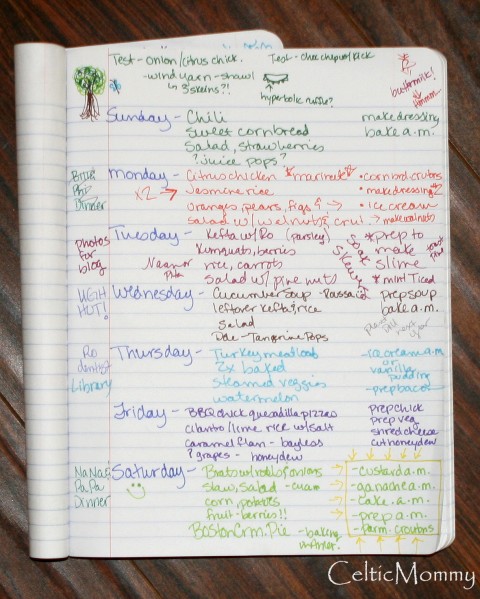 Test - onion/citrus chick.
- wind yarn - shawl
3 skeins?!
Test - choc chipwf/kick
hyperbolic ruffle?
x2
buttermilk!
Sunday - Chili
sweet cornbread
Salad, strawberries
? juice pops?
make dressing
bake a.m.
Britt
Phi
Dinner
monday - Citrus chicken *marinate*
x2 → Jasmine rice
oranges, pears, figs &
salad w/ walnuts &
• cornbrd crutons
• make dressing x2
→ • ice cream
→ make walnuts
photos
for
blog
Tuesday - Kefta w/ Ro (parsley)
Kumquats, berries
rice, carrots
salad w/ pine nuts
Soak
Skewers
*prep to
make
slime
* mint Iced
UGH
HOT!
Wednesday - Cucumber soup
leftover kefta, rice
Salad
Dole - Tangerine Pops
prep soup
bake a.m.
Ro
dentist
Library
Thursday - Turkey meatloab
2x baked
steamed veggies
watermelon
- ice cream a.m.
or
vanilla
pudding
- prep bacon
Friday - BBQ chick quesadilla pizzas
cilanto/lime rice w/ salt
caramel flan - bayless
? grapes - honeydew
prep chick
prep veg
shred cheese
cut honeydew
NaNa &
PaPa
Dinner
Saturday - Brats w/ lots of onions
slaw, salad - cuam
corn, potatoes
fruit - berries!!
Boston Crm. Pie - baking
→ - custard a.m.
→ - a.m.
→ - cake a.m.
→ - prep a.m.
- parm. croutons
CelticMommy